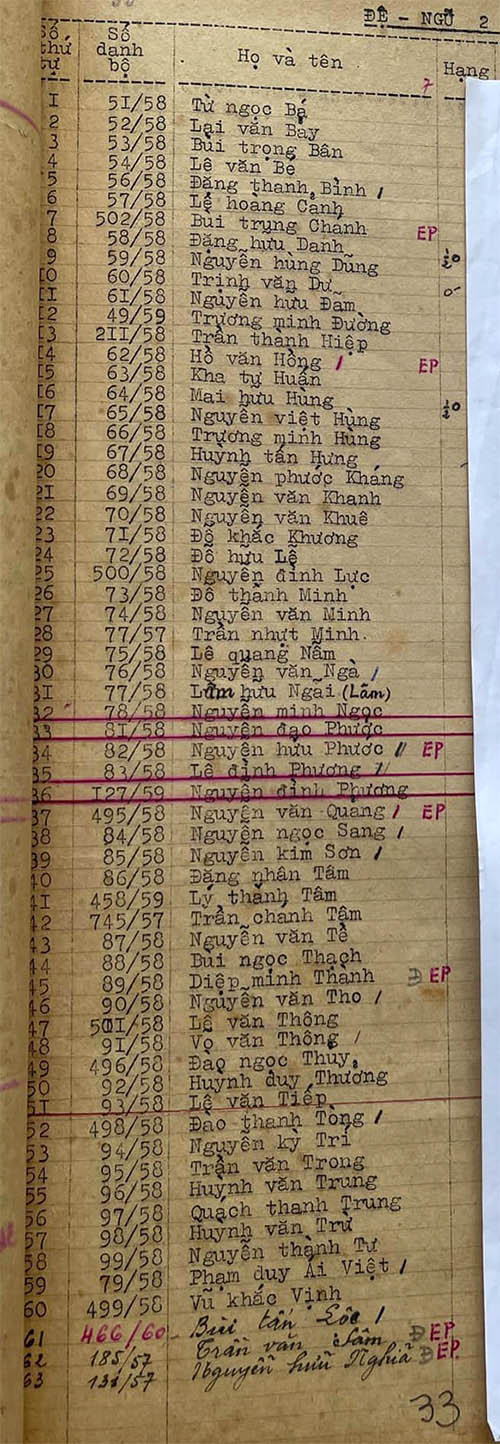 ĐỆ - NGŨ 2
Số thứ tự Số danh bộ Họ và tên Hạng
7
1 51/58 Từ ngọc Bá
2 52/58 Lại văn Bảy
3 53/58 Bùi trọng Bân
4 54/58 Lê văn Bé
5 56/58 Đặng thanh Bình /
6 57/58 Lê hoàng Cảnh
7 502/58 Bùi trung Chánh EP
8 58/58 Đặng hữu Danh
9 59/58 Nguyễn hùng Dũng
10 60/58 Trịnh văn Dư
11 61/58 Nguyễn hữu Đảm
12 49/59 Trương minh Đường
13 211/58 Trần thành Hiệp
14 62/58 Hồ văn Hồng / EP
15 63/58 Kha tự Huấn
16 64/58 Mai hưu Hùng
17 65/58 Nguyễn việt Hùng
18 66/58 Trương minh Hùng
19 67/58 Huynh tấn Hưng
20 68/58 Nguyễn phước Kháng
21 69/58 Nguyễn văn Khanh
22 70/58 Nguyễn văn Khuê
23 71/58 Đỗ khắc Khương
24 72/58 Đỗ hữu Lễ
25 500/58 Nguyễn đình Lực
26 73/58 Đỗ thành Minh
27 74/58 Nguyễn văn Minh
28 77/57 Trần nhựt Minh.
29 75/58 Lê quang Nẫm
30 76/58 Nguyễn văn Ngà /
31 77/58 Lâm hưu Ngãi (Lâm)
32 78/58 Nguyễn minh Ngọc
33 81/58 Nguyễn đạo Phước
34 82/58 Nguyễn hưu Phước // EP
35 83/58 Lê đình Phương //
36 127/59 Nguyễn đình Phương
37 495/58 Nguyễn văn Quang / EP
38 84/58 Nguyễn ngọc Sang /
39 85/58 Nguyễn kim Sơn /
40 86/58 Đặng nhân Tâm
41 458/59 Lý thành Tâm
42 745/57 Trần chanh Tâm
43 87/58 Nguyễn văn Tề
44 88/58 Bùi ngọc Thạch
45 89/58 Diệp minh Thành Đ EP
46 90/58 Nguyễn văn Tho /
47 501/58 Lê văn Thông
48 91/58 Vọ văn Thông /
49 496/58 Đào ngọc Thuy
50 92/58 Huynh duy Thương
51 93/58 Lê văn Tiếp
52 498/58 Đao thanh Tòng /
53 94/58 Nguyễn kỳ Trí
54 95/58 Trần văn Trong
55 96/58 Huỳnh văn Trung
56 97/58 Quạch thanh Trung
57 98/58 Huỳnh văn Trừ
58 99/58 Nguyễn thành Tự
59 79/58 Phạm duy Ái Việt /
60 499/58 Vũ khắc Vịnh
61 466/60 Bùi tấn Lộc /
62 185/57 Trần văn Lâm Đ EP
63 131/57 Nguyễn hữu Nghĩa Đ EP
33